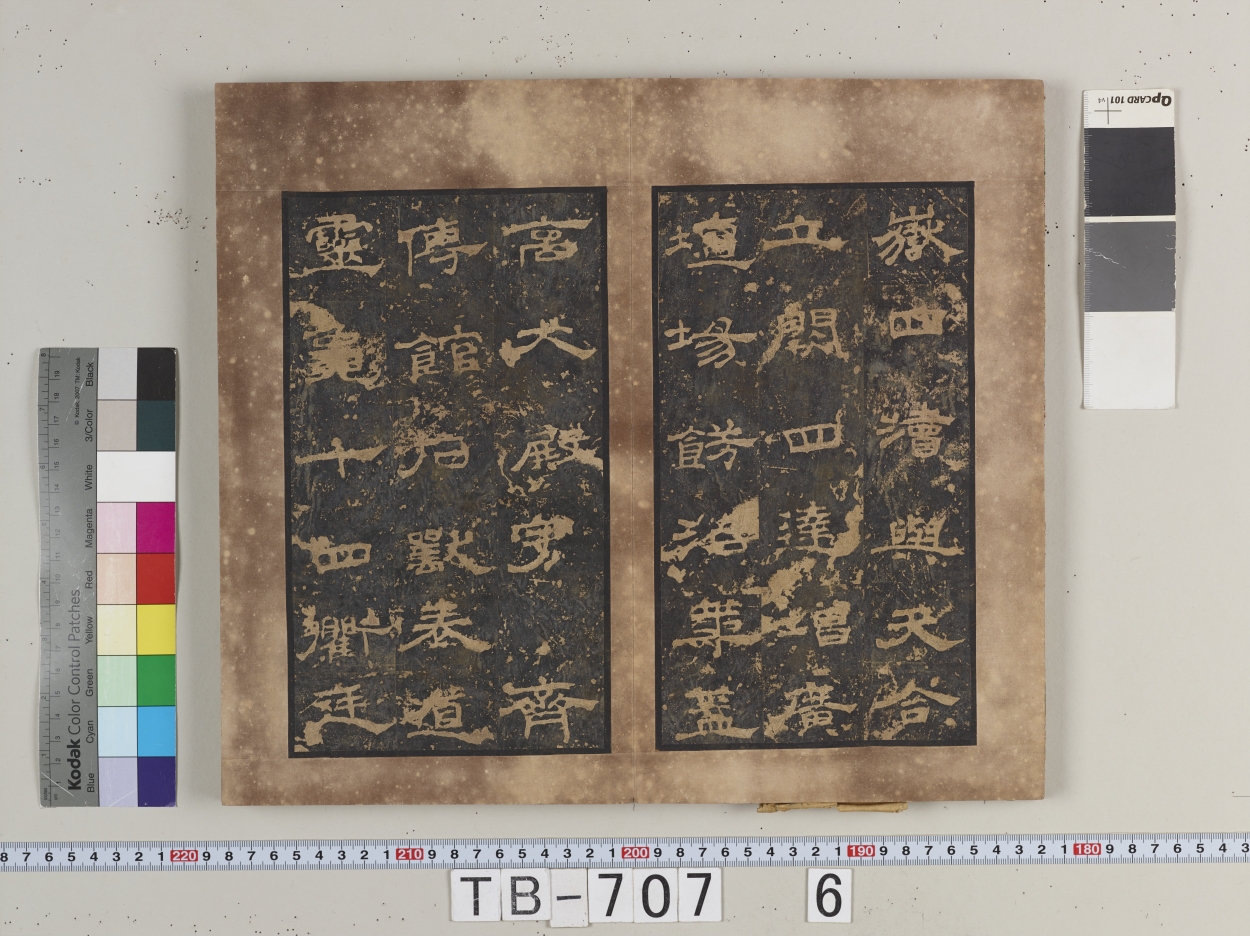 嶽四瀆與天合
立闕四達增廣
壇場飭治華蓋
高大殿宇齊
傳館招獸表道
靈龜十四衢廷
QPCARD 101 v4
Kodak Color Control Patches
Blue Cyan Green Yellow Red Magenta White 3/Color Black
8 7 6 5 4 3 2 1 220 9 8 7 6 5 4 3 2 1 210 9 8 7 6 5 4 3 2 1 200 9 8 7 6 5 4 3 2 1 190 9 8 7 6 5 4 3 2 1 180 9 8 7 6 5 4 3
TB-707 6